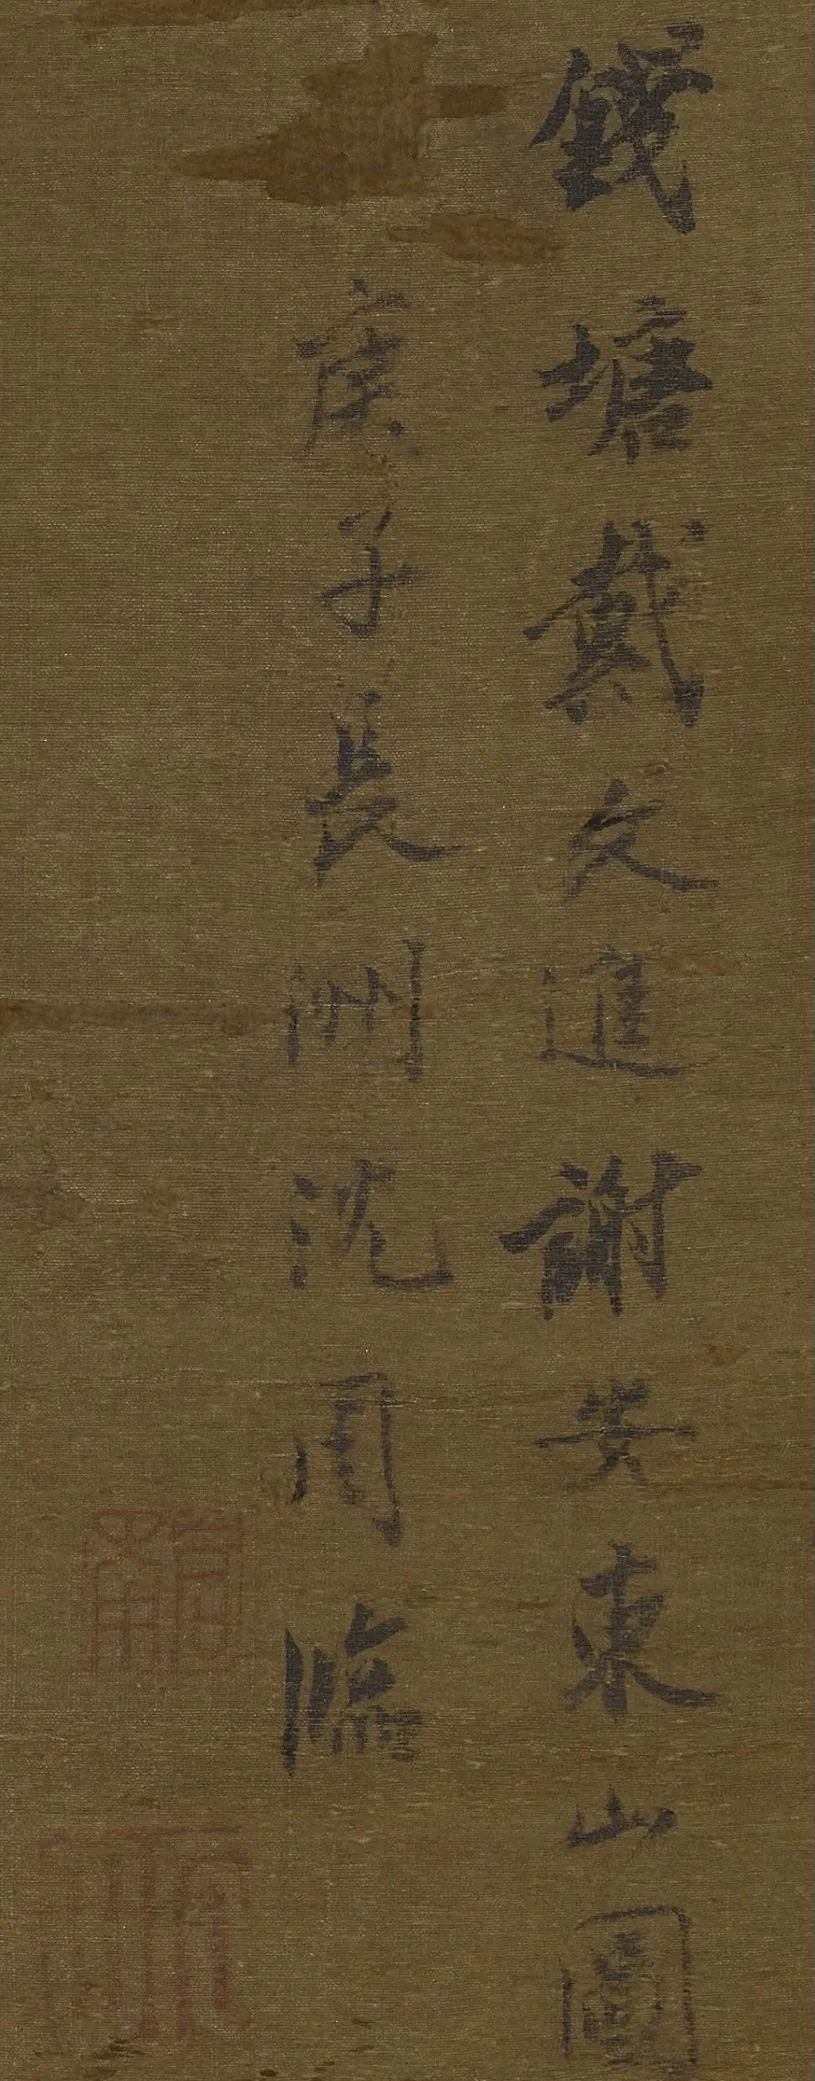 錢塘戴文進謝安東山圖
庚子長洲沈周臨
啓南